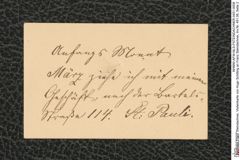 Anfangs Monat
März ziehe ich mit meinem
Geschäft nach der Bartels-
Straße 114. St. Pauli.